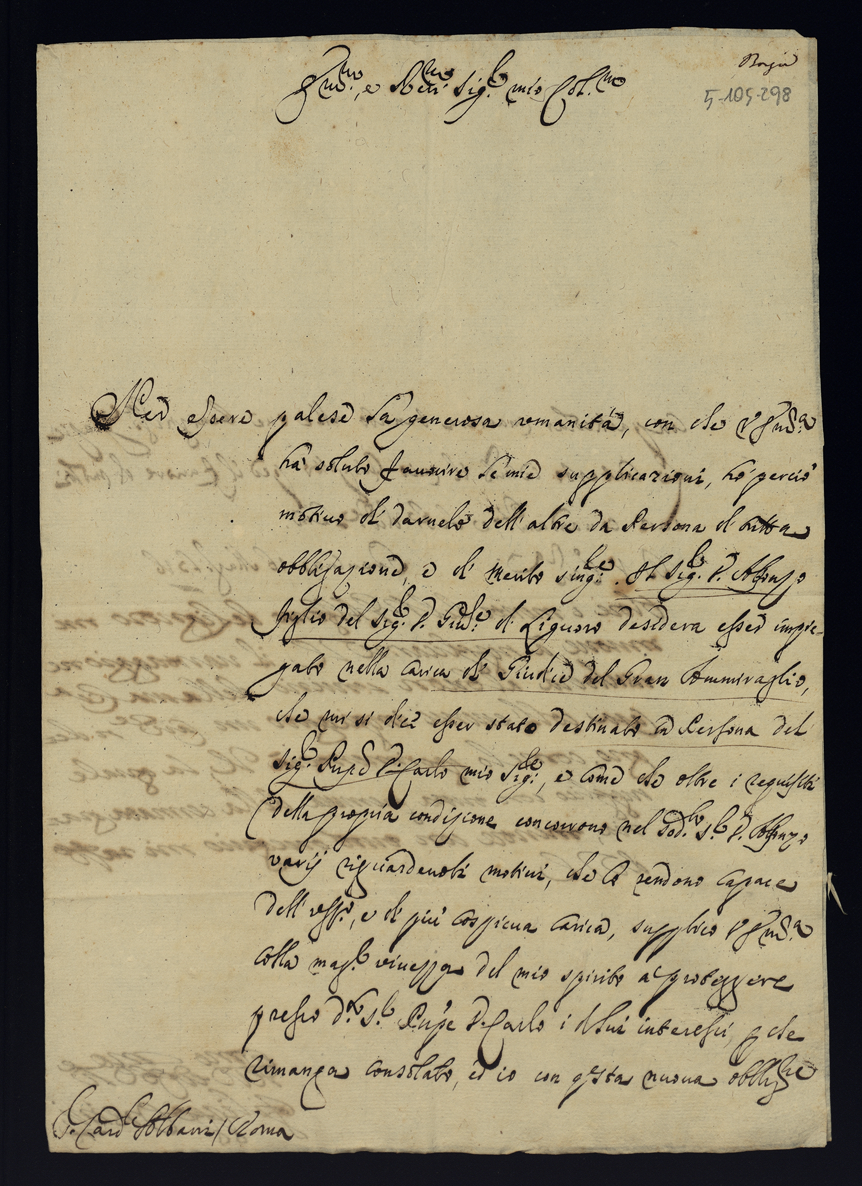 Ragia
5-105-298
Em.mo, e R.mo Sig.r mio Col.mo
Nel essere palese la generosa umanità, con che V Em.za
hà soluto favorire le mie supplicazioni, hò perciò
motivo di darvelo dell'altre da Persona di tutta
obbligazione, e di merito sing.re. Il Sig.r D. Alfonzo
figlio del Sig.r D. Gius.e di Liguoro desidera esser impie-
gato nella carica di Giudice del Gran Ammiraglio,
che mi si dice esser stato destinato in Persona del
Sig.r Prnpe D. Carlo mio Sig.re, e come che oltre i requisiti
della propria condizione concorrono nel sod.to S.r D. Alfonzo
varij riguardevoli motivi, che lo rendono capace
dell'uff.o, e di più cospicua carica, supplico V Em.za
colla mag.r vivezza del mio spirito a proteggere
presso d.to S.r Prnpe D. Carlo i di lui interessi, p che
rimanga consolato, ed io con q.sta nuova obblig.ne
S.r Card.l Albani / Roma